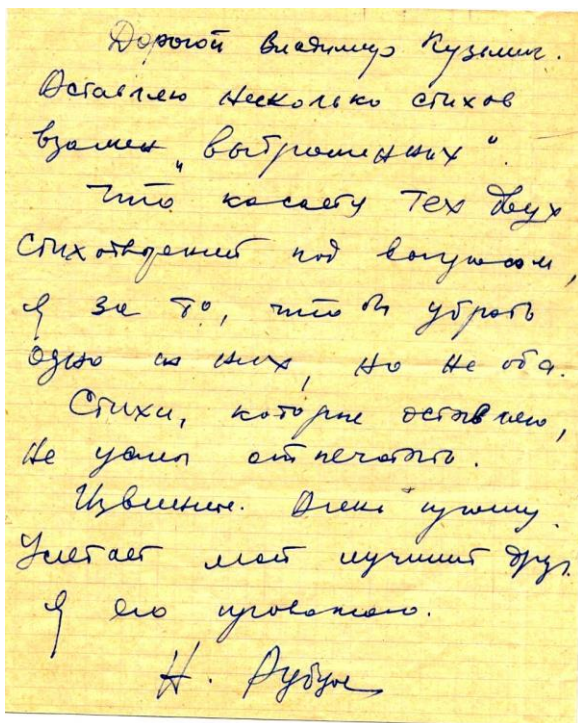 Дорогой Владимир Кузьмич.
Оставляю несколько стихов
взамен „выброшенных“.
Что касается тех двух
стихотворений под вопросом,
я за то, что бы убрать
одно из них, но не оба.
Стихи, которые оставляю,
не успел отпечатать.
Извините. Очень прошу.
Улетает мой лучший друг.
Я его провожаю.
Н. Рубцов